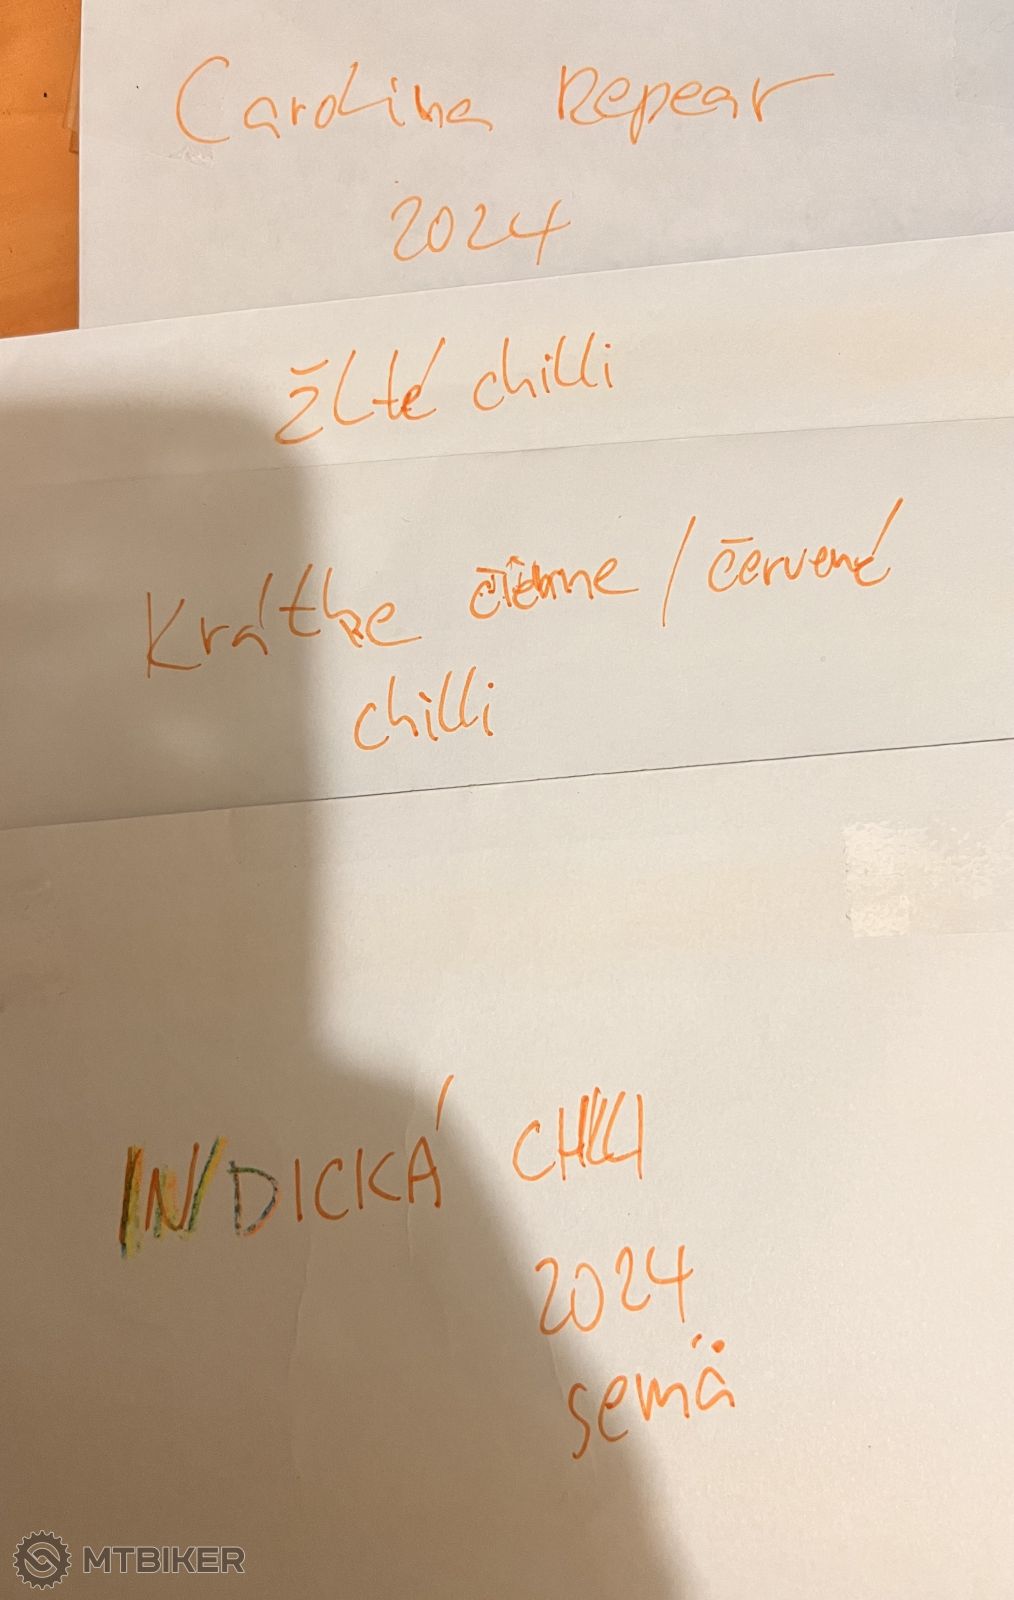 Carolina Repear
2024
žlté chilli
Krátke čierne / červené
chilli
INDICKÁ CHILLI
2024
semä
MTBIKER